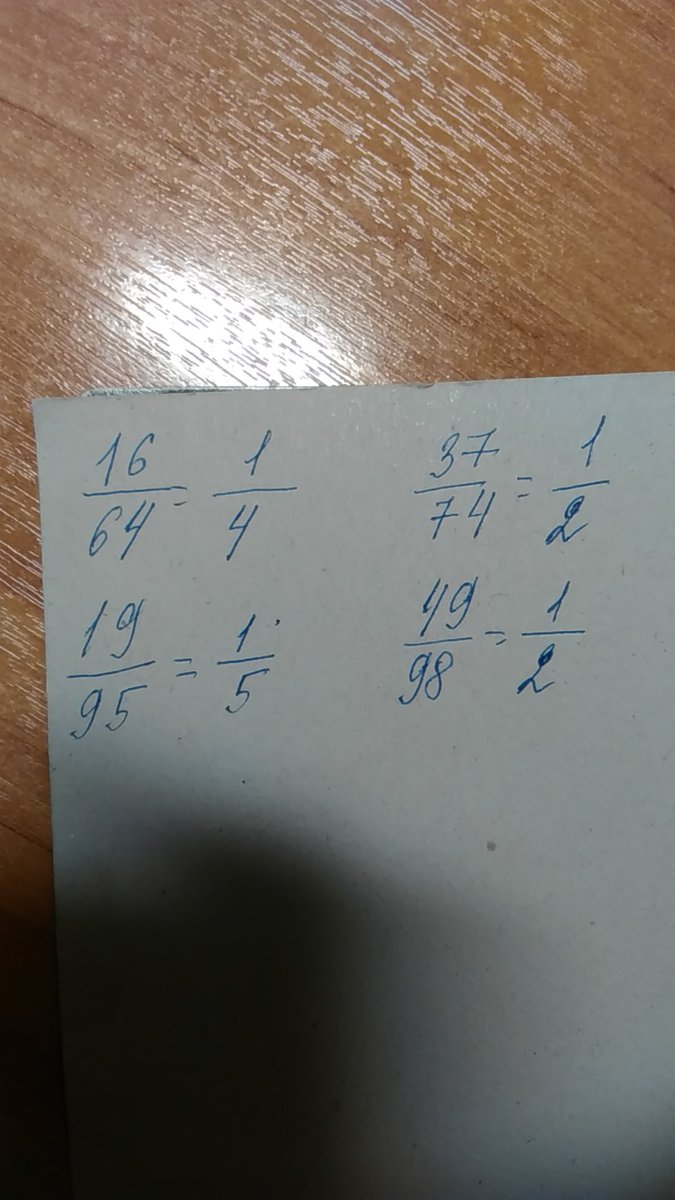 16/64 = 1/4   37/74 = 1/2
19/95 = 1/5   49/98 = 1/2